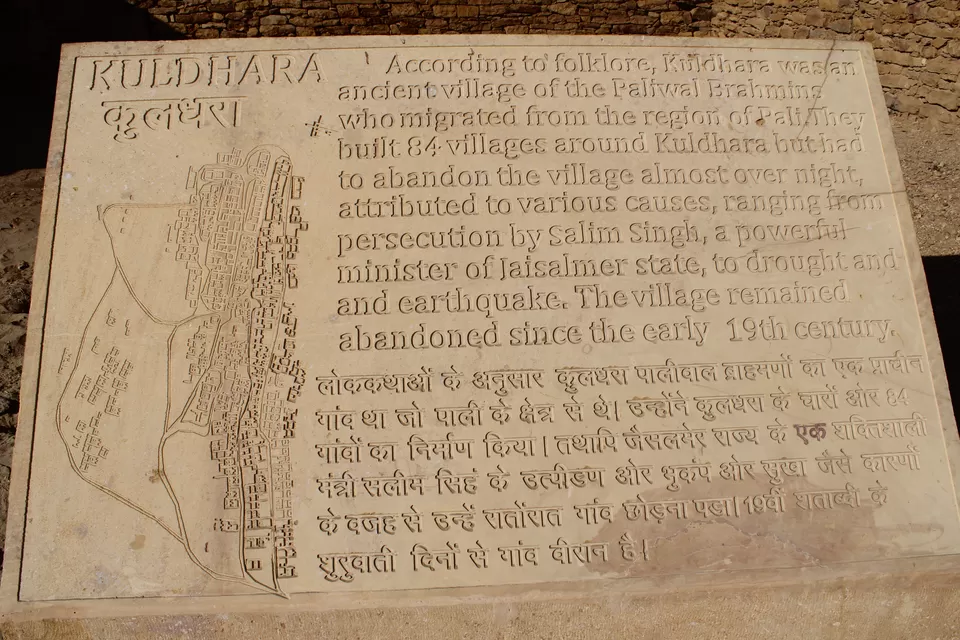 KULDHARA
कुलधरा
According to folklore, Kuldhara was an
ancient village of the Paliwal Brahmins
who migrated from the region of Pali. They
built 84 villages around Kuldhara but had
to abandon the village almost over night,
attributed to various causes, ranging from
persecution by Salim Singh, a powerful
minister of Jaisalmer state, to drought and
and earthquake. The village remained
abandoned since the early 19th century.
लोककथाओं के अनुसार कुलधरा पालीवाल ब्राहमणों का एक प्राचीन
गांव था जो पाली के क्षेत्र से थे। उन्होंने कुलधरा के चारों ओर 84
गांवों का निर्माण किया। तथापि जैसलमेर राज्य के एक शक्तिशाली
मंत्री सलीम सिहं के उत्पीडण ओर भुकंप ओर सुखा जैसे कारणों
के वजह से उन्हें रातोंरात गांव छोड़ना पडा। 19वीं शताब्दी के
शुरुवाती दिनों से गांव वीरान है।